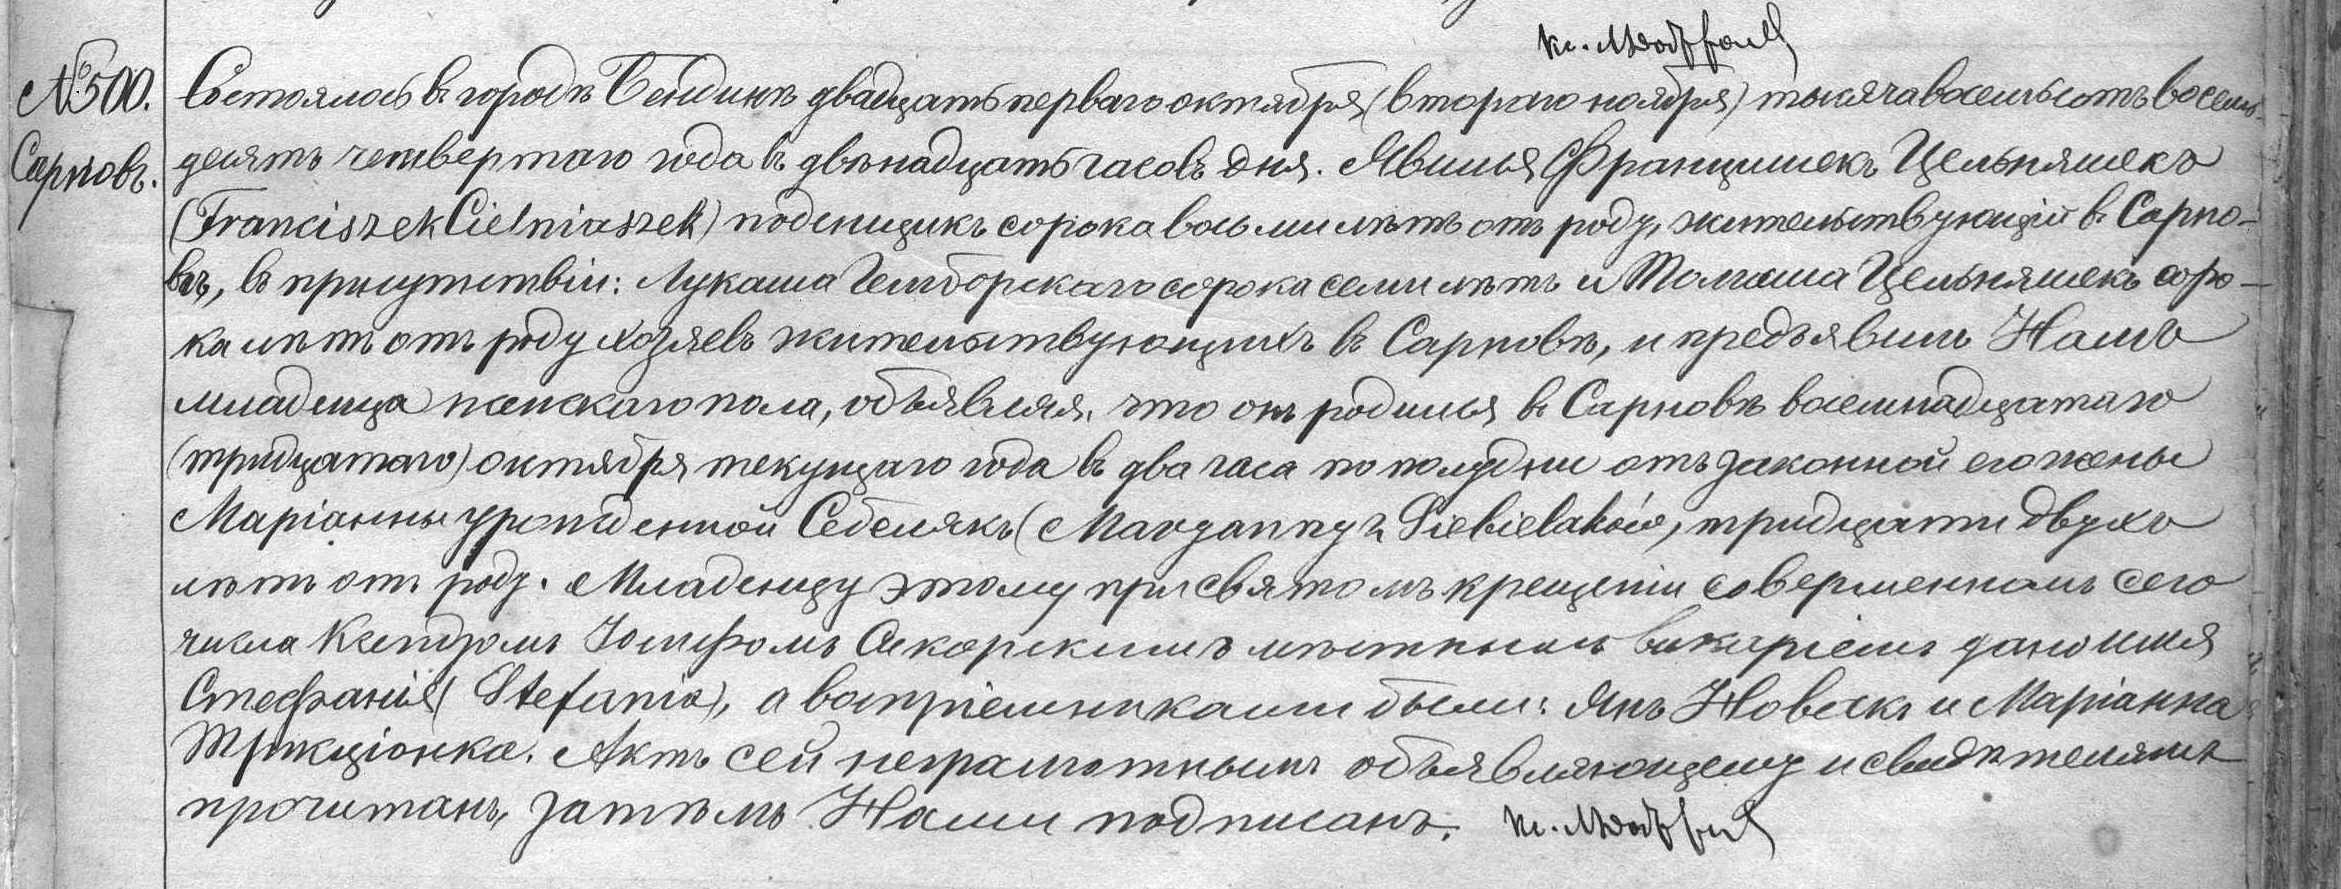 №500.
Сарновъ.
Состоялось въ городѣ Бендинѣ двадцать перваго октября (втораго ноября) тысяча восемьсотъ восемь-
десятъ четвертаго года въ двѣнадцать часовъ дня. Явился Францишекъ Цельняшекъ
(Franciszek Cielniaszek) поденщикъ сорока восьми лѣтъ отъ роду, жительствующій въ Сарно-
вѣ, въ присутствіи: Лукаша сорока семи лѣтъ и Томаша Цельняшекъ соро-
ка лѣтъ отъ роду хозяевъ жительствующихъ въ Сарновѣ, и предъявилъ Намъ
младенца женскаго пола, объявляя, что онъ родился въ Сарновѣ восемнадцатаго
(тридцатаго) октября текущаго года въ два часа по полудни отъ законной его жены
Маріанны урожденной Себелякъ (Maryanny z Siebielaków) тридцати двухъ
лѣтъ отъ роду. Младенцу этому при святомъ крещеніи совершенномъ сего
числа Ксендзомъ Іосифомъ Сикорскимъ мѣстнымъ викаріемъ дано имя
Стефанія (Stefania), а воспріемниками были: Янъ Новакъ и Маріанна
Актъ сей неграмотнымъ объявляющему и свидѣтелямъ
прочитанъ, затѣмъ Нами подписанъ.